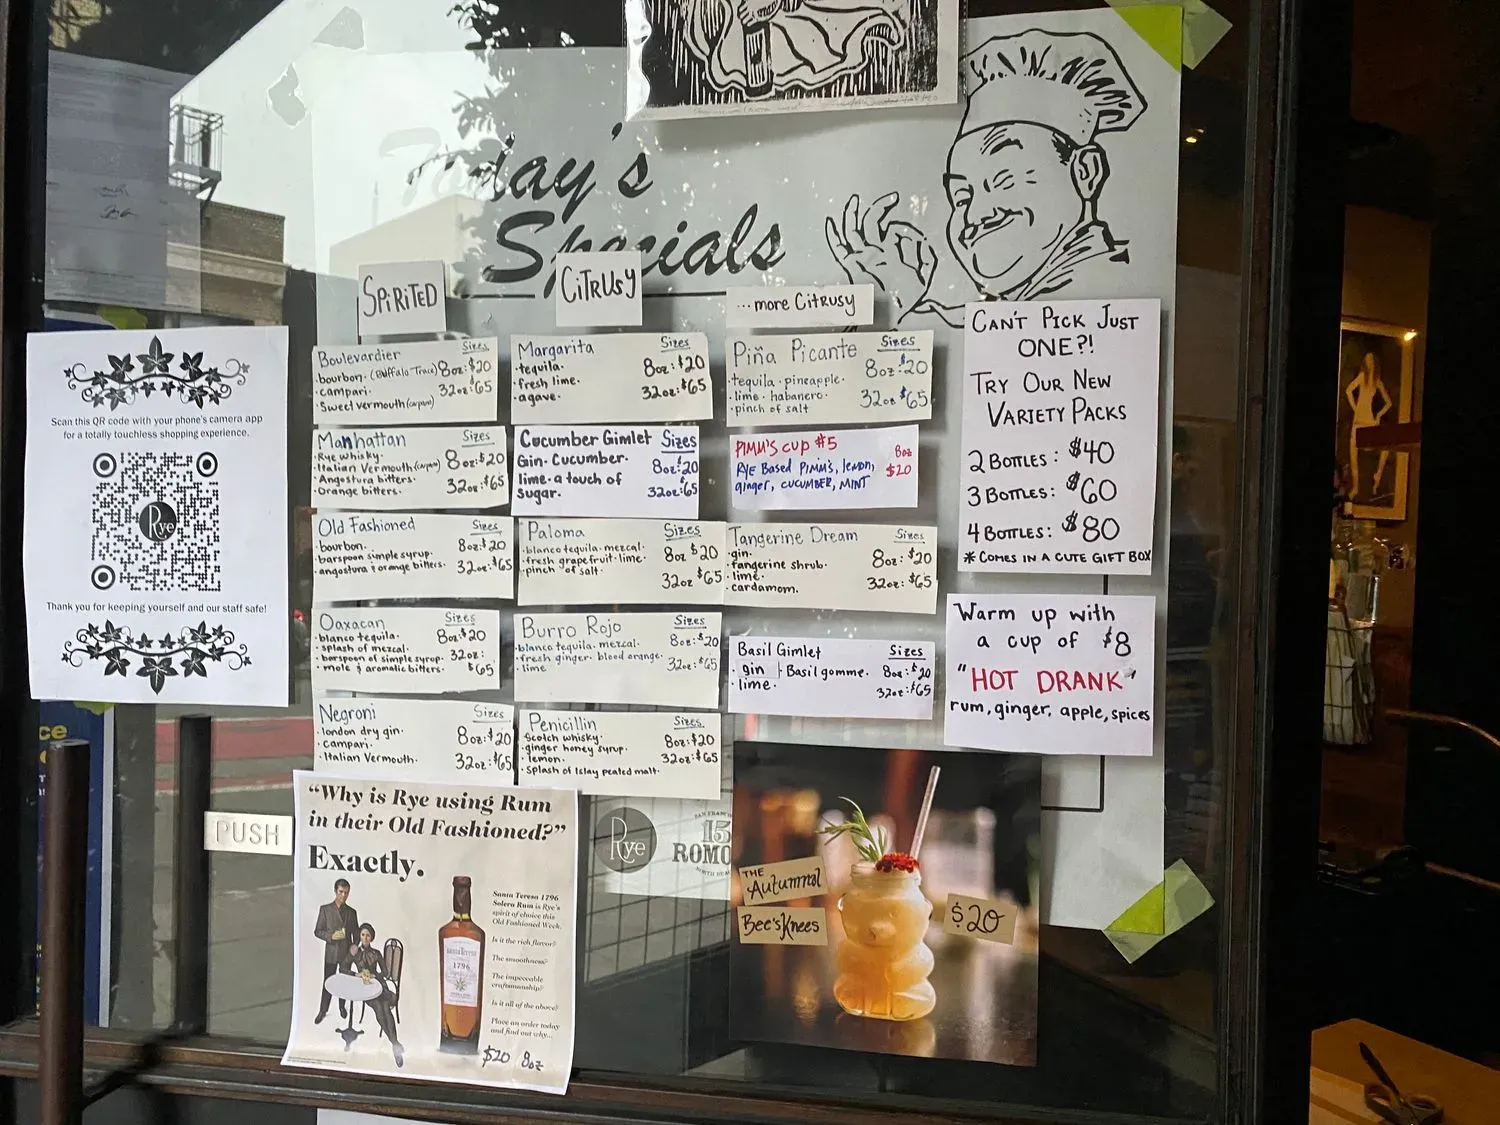 Today's
Specials
SPiRiTED
CiTRUSY
...more CitRUSY
Scan this QR code with your phone's camera app
for a totally touchless shopping experience.
Rye
Thank you for keeping yourself and our staff safe!
Boulevardier
Sizes
bourbon. (Buffalo Trace) 8oz: $20
campari. 32oz: $65
Sweet vermouth (carpano)
Manhattan
Sizes
Rye whisky.
Italian Vermouth (carpano) 8oz: $20
Angostura bitters. 32oz: $65
Orange bitters.
Old Fashioned
Sizes
bourbon. 8oz: $20
barspoon simple syrup. 32oz: $65
angostura & orange bitters.
Oaxacan
Sizes
blanco tequila. 8oz: $20
splash of mezcal.
barspoon of simple syrup. 32oz: $65
mole & aromatic bitters.
Negroni
Sizes
london dry gin. 8oz: $20
campari. 32oz: $65
Italian Vermouth.
Margarita
Sizes
tequila. 8oz: $20
fresh lime. 32oz: $65
agave.
Cucumber Gimlet
Sizes
Gin. Cucumber. 8oz: $20
lime. a touch of 32oz: $65
Sugar.
Paloma
Sizes
blanco tequila. mezcal. 8oz $20
fresh grapefruit. lime.
pinch of salt. 32oz $65
Burro Rojo
Sizes
blanco tequila. mezcal. 8oz: $20
fresh ginger. blood orange. 32oz: $65
lime
Penicillin
Sizes
Scotch whisky. 8oz: $20
ginger honey syrup. 32oz: $65
lemon.
splash of Islay peated malt.
Piña Picante
Sizes
tequila. pineapple. 8oz: $20
lime. habanero. 32oz: $65
pinch of salt
PIMM'S CUP #5
8oz
RYE BASED PIMM'S, lemon, $20
ginger, CUCUMBER, MINT
Tangerine Dream
Sizes
gin. 8oz: $20
tangerine shrub.
lime. 32oz: $65
cardamom.
Basil Gimlet
Sizes
gin Basil gomme. 8oz: $20
lime. 32oz: $65
CAN'T PICK JUST
ONE?!
TRY OUR NEW
VARIETY PACKS
2 BOTTLES: $40
3 BOTTLES: $60
4 BOTTLES: $80
* COMES IN A CUTE GIFT BOX
Warm up with
a cup of $8
"HOT DRANK"
rum, ginger, apple, spices
PUSH
"Why is Rye using Rum
in their Old Fashioned?"
Exactly.
Santa Teresa 1796
Solera Rum is Rye's
spirit of choice this
Old Fashioned Week.
Is it the rich flavor?
The smoothness?
The impeccable
craftsmanship?
Is it all of the above?
Place an order today
and find out why...
$20 8oz
1796
Rye
15
ROMO
THE
Autumnal
Bee's Knees
$20